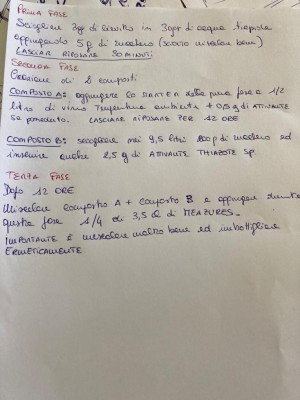 PRIMA FASE
Sciogliere 3gr di lievito in 30gr di acqua tiepida
aggiungendo 5 g di zucchero (scioto miscelare bene)
LASCIAR RIPOSARE 30 MINUTI
SECONDA FASE
Creazione di 2 composti
COMPOSTO A: aggiungere lo STARTER della prima fase a 1/2
litro di vino Temperatura ambiente + 0,5 g di ATTIVANTE
LASCIARE RIPOSARE PER 12 ORE
COMPOSTO B: sciogliere nei 9,5 litri 200p di zucchero ed
inserire anche 2,5 g di ATTIVANTE THIAZOTE SP.
TERZA FASE
Dopo 12 ORE
Miscelare composto A + composto B e aggiungere durante
questa fase 1/4 di 3,5 di
IMPORTANTE È miscelare molto bene ed imbottigliare
ERMETICAMENTE